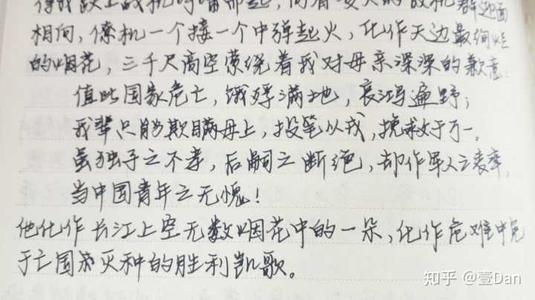 得我跃上战机呼啸而起，向着
相向，僚机一个接一个中弹起火，化作天边最绚烂
的烟花，三千尺高空萦绕着我对母亲深深的歉意
值此国家危亡，饿殍满地，哀鸿遍野，
我辈只能欺瞒母上，投笔从戎，挽救于万一。
虽独子之不孝，后嗣之断绝，却作军人之表率，
当中国青年之无愧！
他化作长江上空无数烟花中的一朵，化作危难中免
于亡国灭种的胜利凯歌。
知乎 @壹Dan